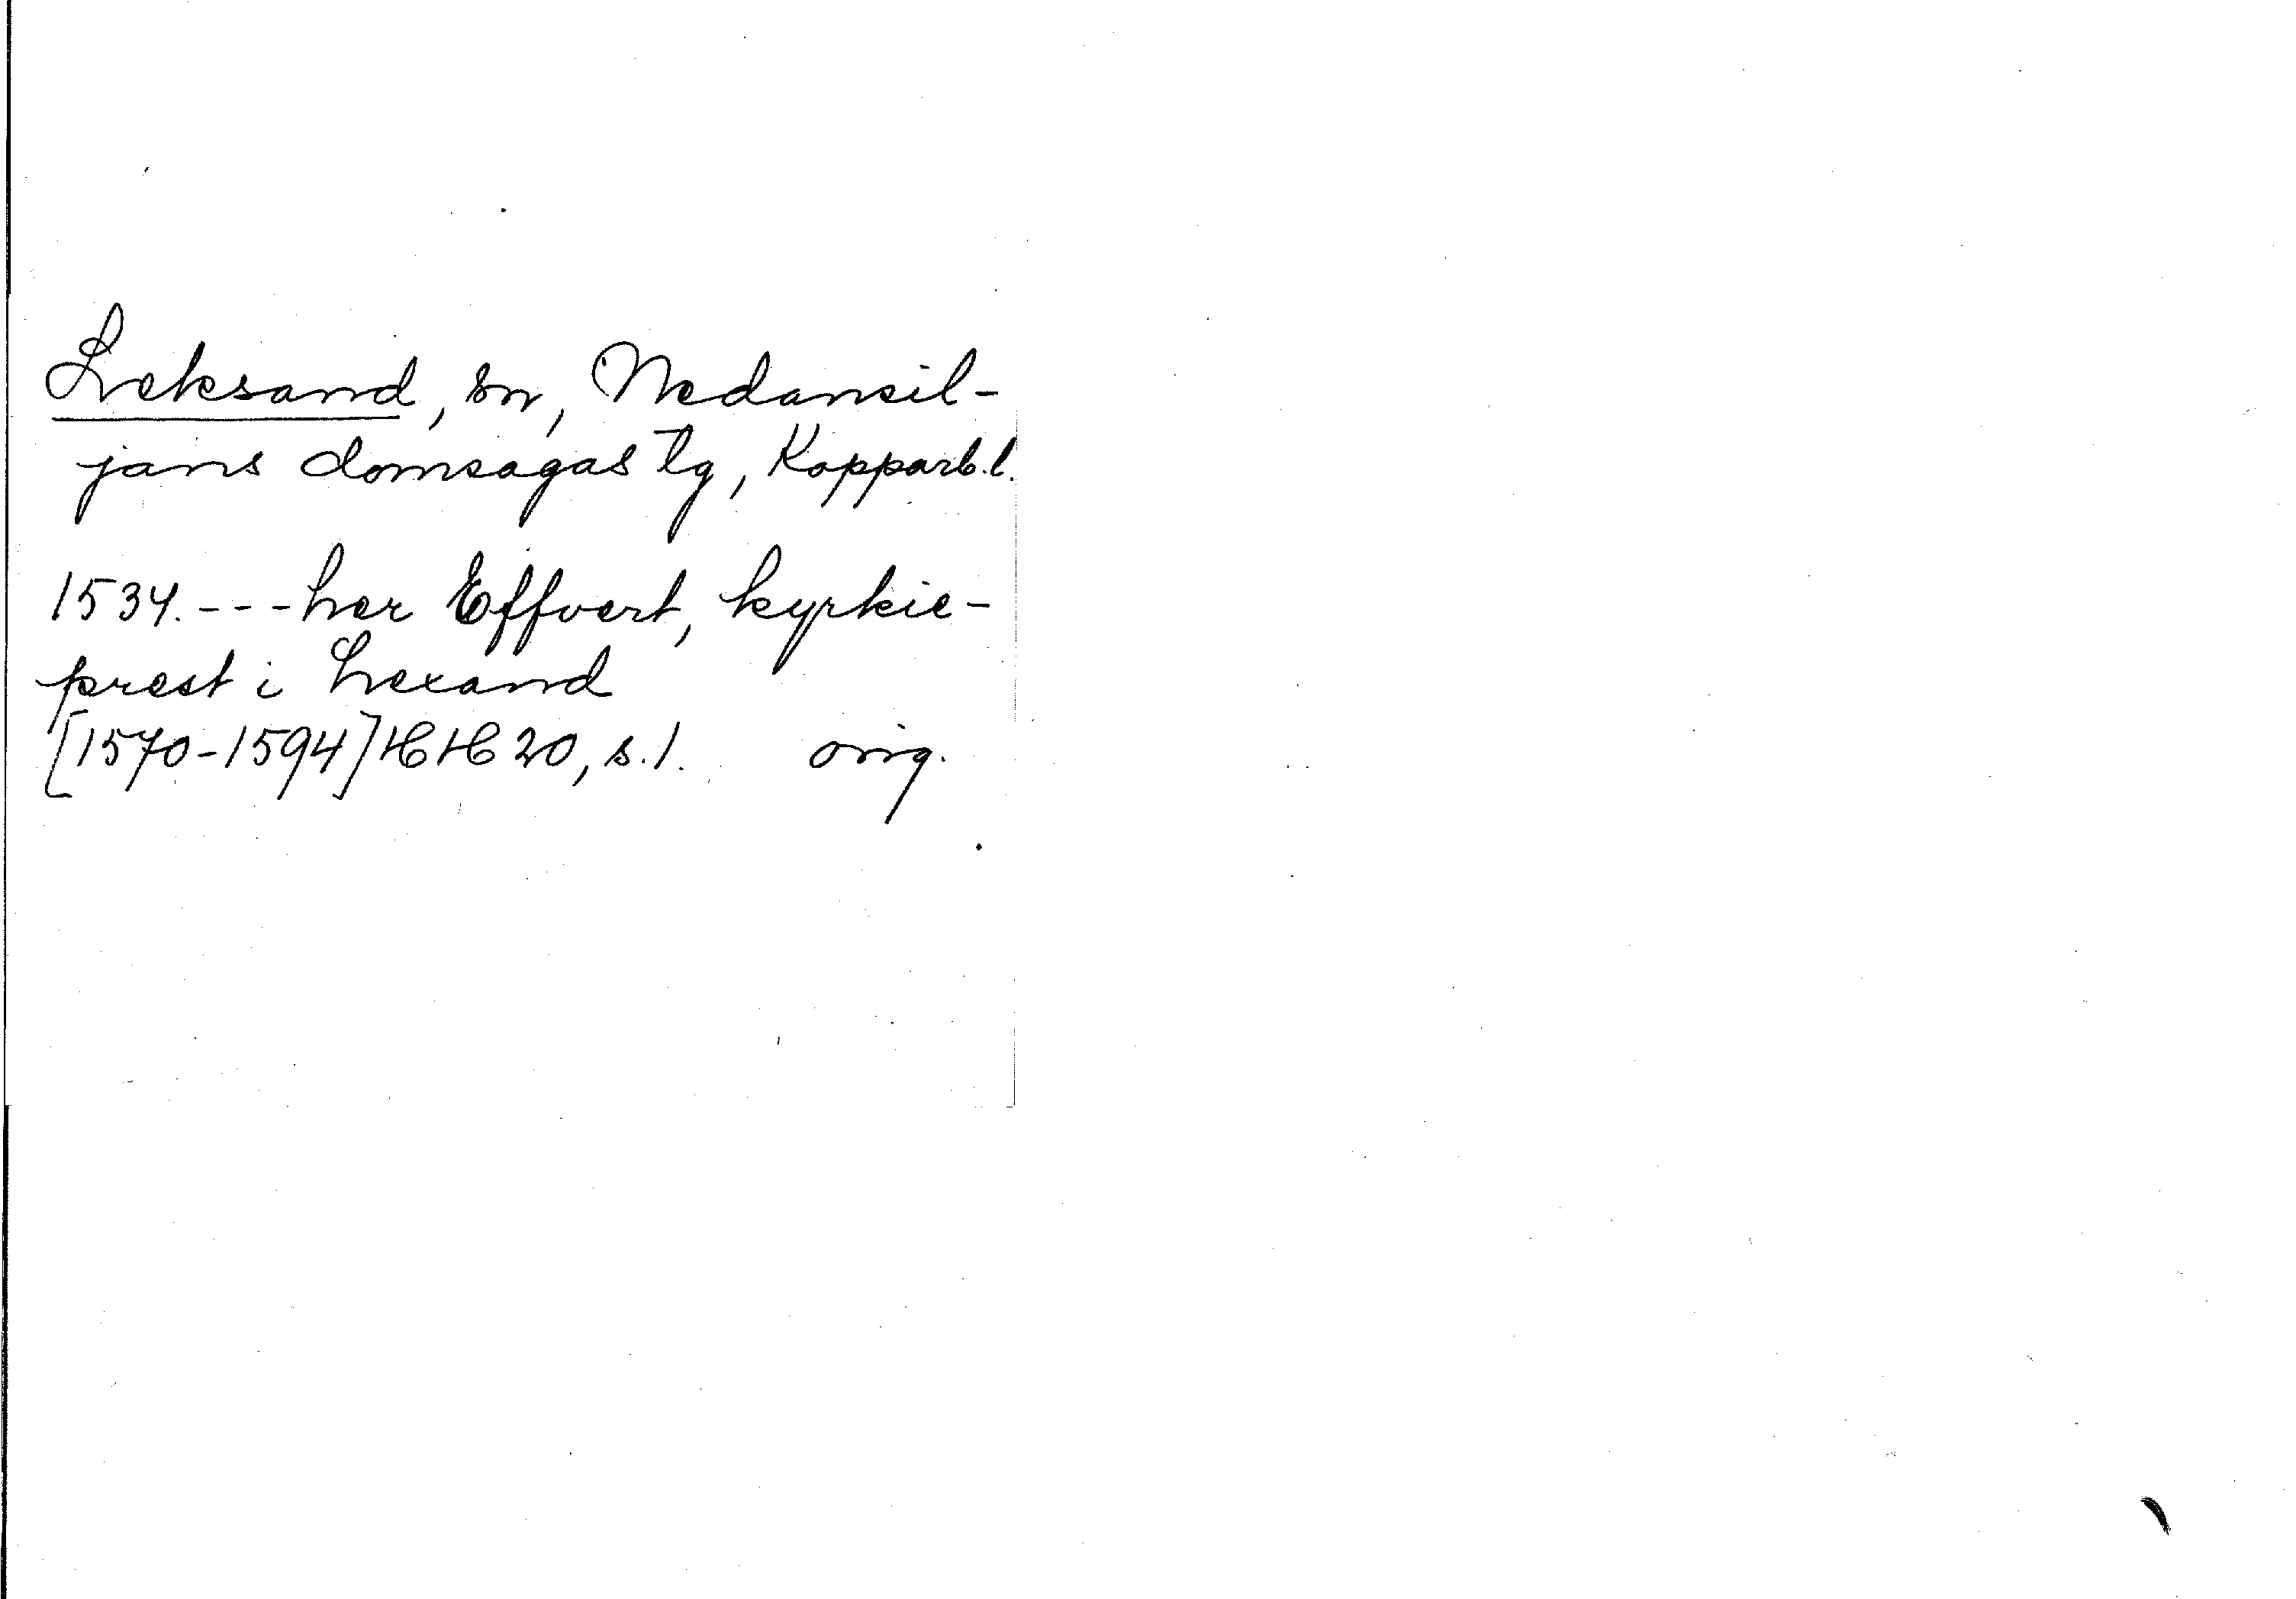 Leksand, sn, Nedansil-
jans domsagas tg, Kopparb.l.
1534. --- her Effvert, kyrkie-
prest i Lexand
[1570-1594] HH 20, s.1. orig.